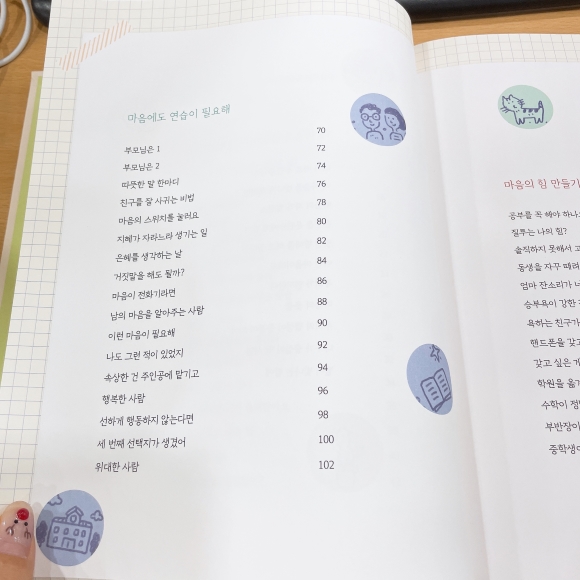 마음에도 연습이 필요해
부모님은 1 70
부모님은 2 72
따뜻한 말 한마디 74
친구를 잘 사귀는 비법 76
마음의 스위치를 눌러요 78
지혜가 자라느라 생기는 일 80
은혜를 생각하는 날 82
거짓말을 해도 될까? 84
마음이 전화기라면 86
남의 마음을 알아주는 사람 88
이런 마음이 필요해 90
나도 그런 적이 있었지 92
속상한 건 주인공에 맡기고 94
행복한 사람 96
선하게 행동하지 않는다면 98
세 번째 선택지가 생겼어 100
위대한 사람 102
마음의 힘 만들기
공부를 꼭 해야 하나
질투는 나의 힘?
솔직하지 못해서
동생을 자꾸 때려
엄마 잔소리가
승부욕이 강한
욕하는 친구가
핸드폰을 갖고
갖고 싶은
학원을
수학이
부반장이
중학생이